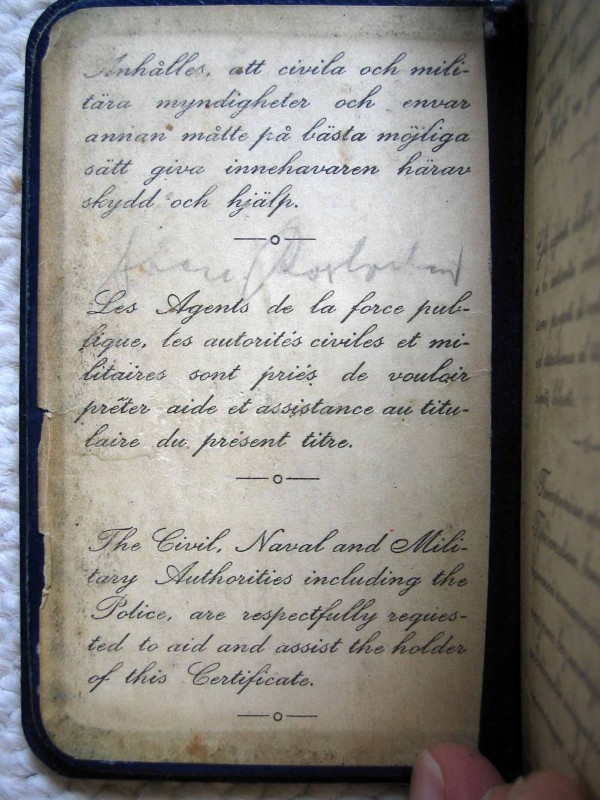 Anhålles, att civila och mili-
tära myndigheter och envar
annan måtte på bästa möjliga
sätt giva innehavaren härav
skydd och hjälp.
Les Agents de la force pub-
lique, les autorités civiles et mi-
litaires sont priés de vouloir
prêter aide et assistance au titu-
laire du présent titre.
The Civil, Naval and Mili-
tary Authorities including the
Police, are respectfully reques-
ted to aid and assist the holder
of this Certificate.